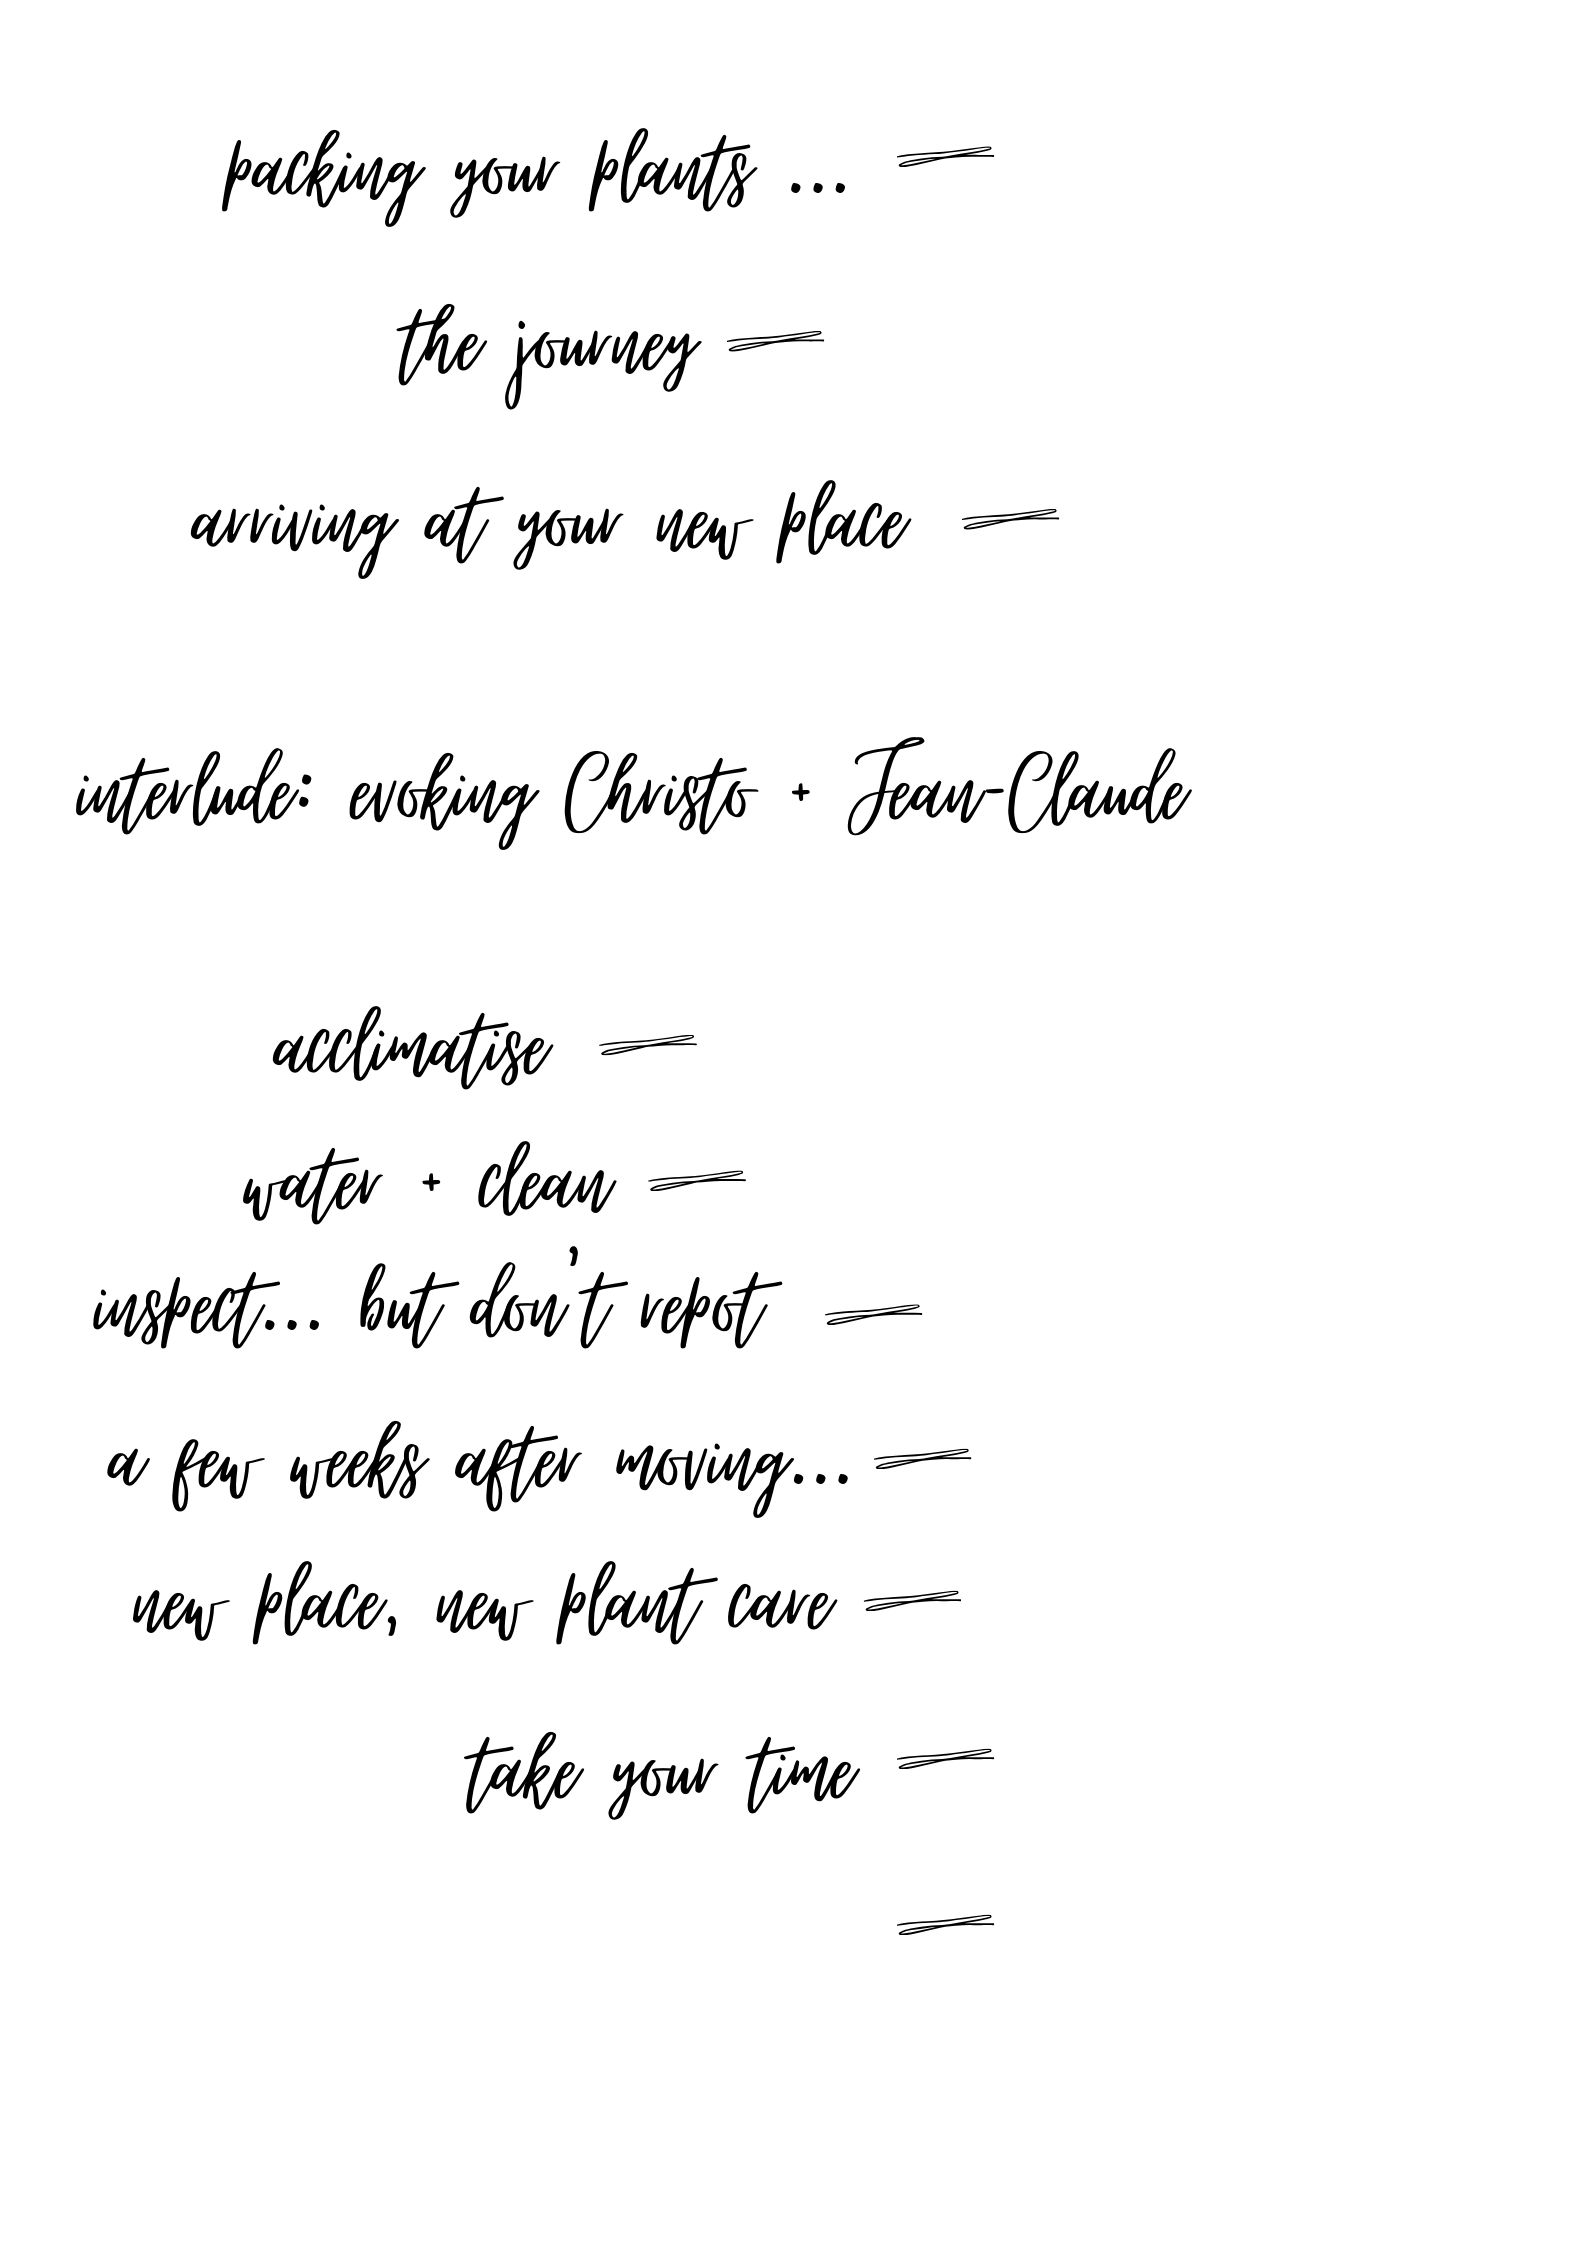 packing your plants ...
the journey
arriving at your new place
interlude: evoking Christo + Jean-Claude
acclimatise
water + clean
inspect... but don't repot
a few weeks after moving...
new place, new plant care
take your time